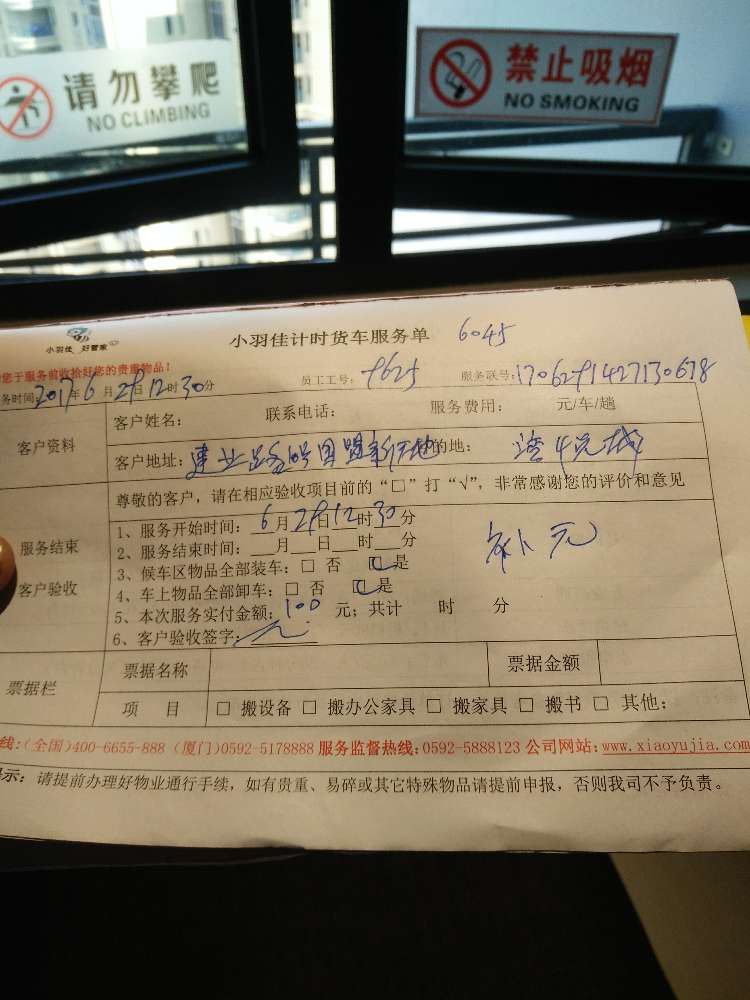 请勿攀爬
NO CLIMBING
禁止吸烟
NO SMOKING
小羽佳 好管家
小羽佳计时货车服务单 6045
您于服务前收拾好您的贵重物品!
务时间:2017年6月29日12时30分 员工工号: 9625 服务联号:1706291427130678
客户资料
客户姓名: 联系电话: 服务费用: 元/车/趟
客户地址: 建业路 号国盟新 的地:
尊敬的客户，请在相应验收项目前的“□”打“√”，非常感谢您的评价和意见
服务结束
客户验收
1、服务开始时间: 6月29日12时30分
2、服务结束时间: 月 日 时 分
3、候车区物品全部装车: □ 否 □是
4、车上物品全部卸车: □ 否 □是
5、本次服务实付金额: 100 元; 共计 时 分
6、客户验收签字:
票据栏
票据名称 票据金额
项 目 □ 搬设备 □ 搬办公家具 □ 搬家具 □ 搬书 □ 其他:
线:(全国)400-6655-888 (厦门)0592-5178888 服务监督热线:0592-5888123 公司网站:www.xiaoyujia.com
示: 请提前办理好物业通行手续，如有贵重、易碎或其它特殊物品请提前申报，否则我司不予负责。